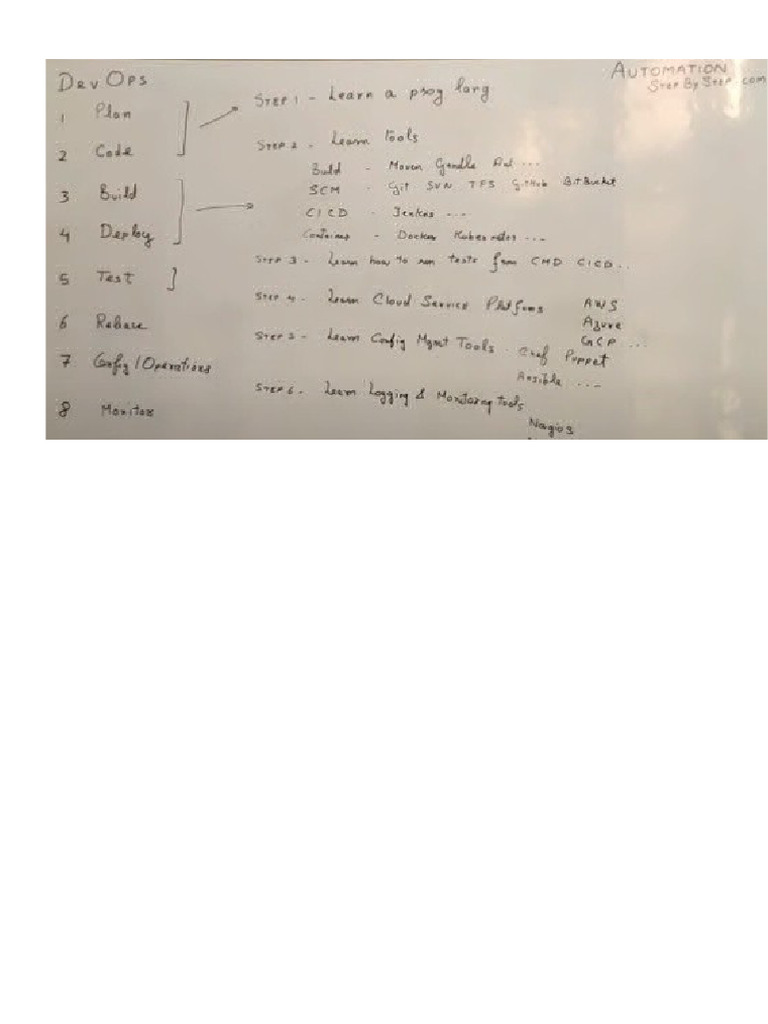 DevOps
1 Plan
2 Code
3 Build
4 Deploy
5 Test
6 Release
7 Config / Operations
8 Monitor
AUTOMATION
STEP BY STEP .com
STEP 1 - Learn a prog lang
STEP 2 - Learn tools
Build - Maven Gradle Ant ...
SCM - Git SVN TFS GitHub BitBucket
CICD - Jenkins ...
Containers - Docker Kubernetes ...
STEP 3 - Learn how to run tests from CMD CICD ..
STEP 4 - Learn Cloud Service Platforms AWS
Azure
GCP ...
STEP 5 - Learn Config Mgmt Tools - Chef Puppet
Ansible ...
STEP 6 - Learn Logging & Monitoring tools
Nagios